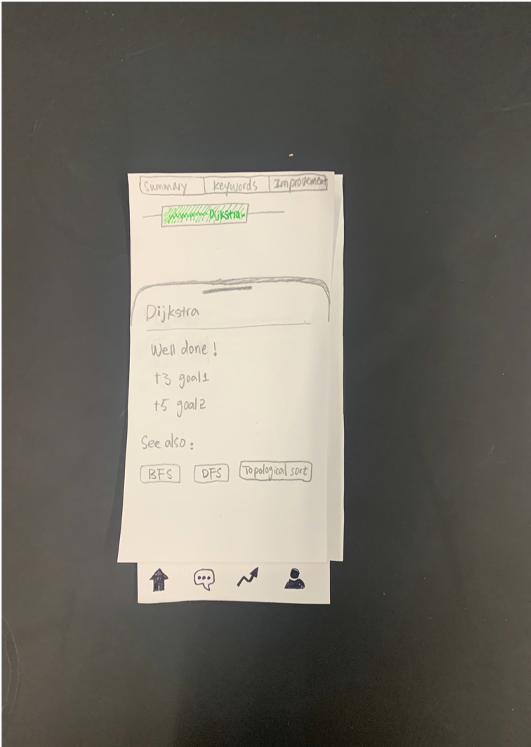 Summary keywords Improvement
Dijkstra
Dijkstra
Well done!
+3 goal1
+5 goal2
See also:
BFS DFS Topological sort